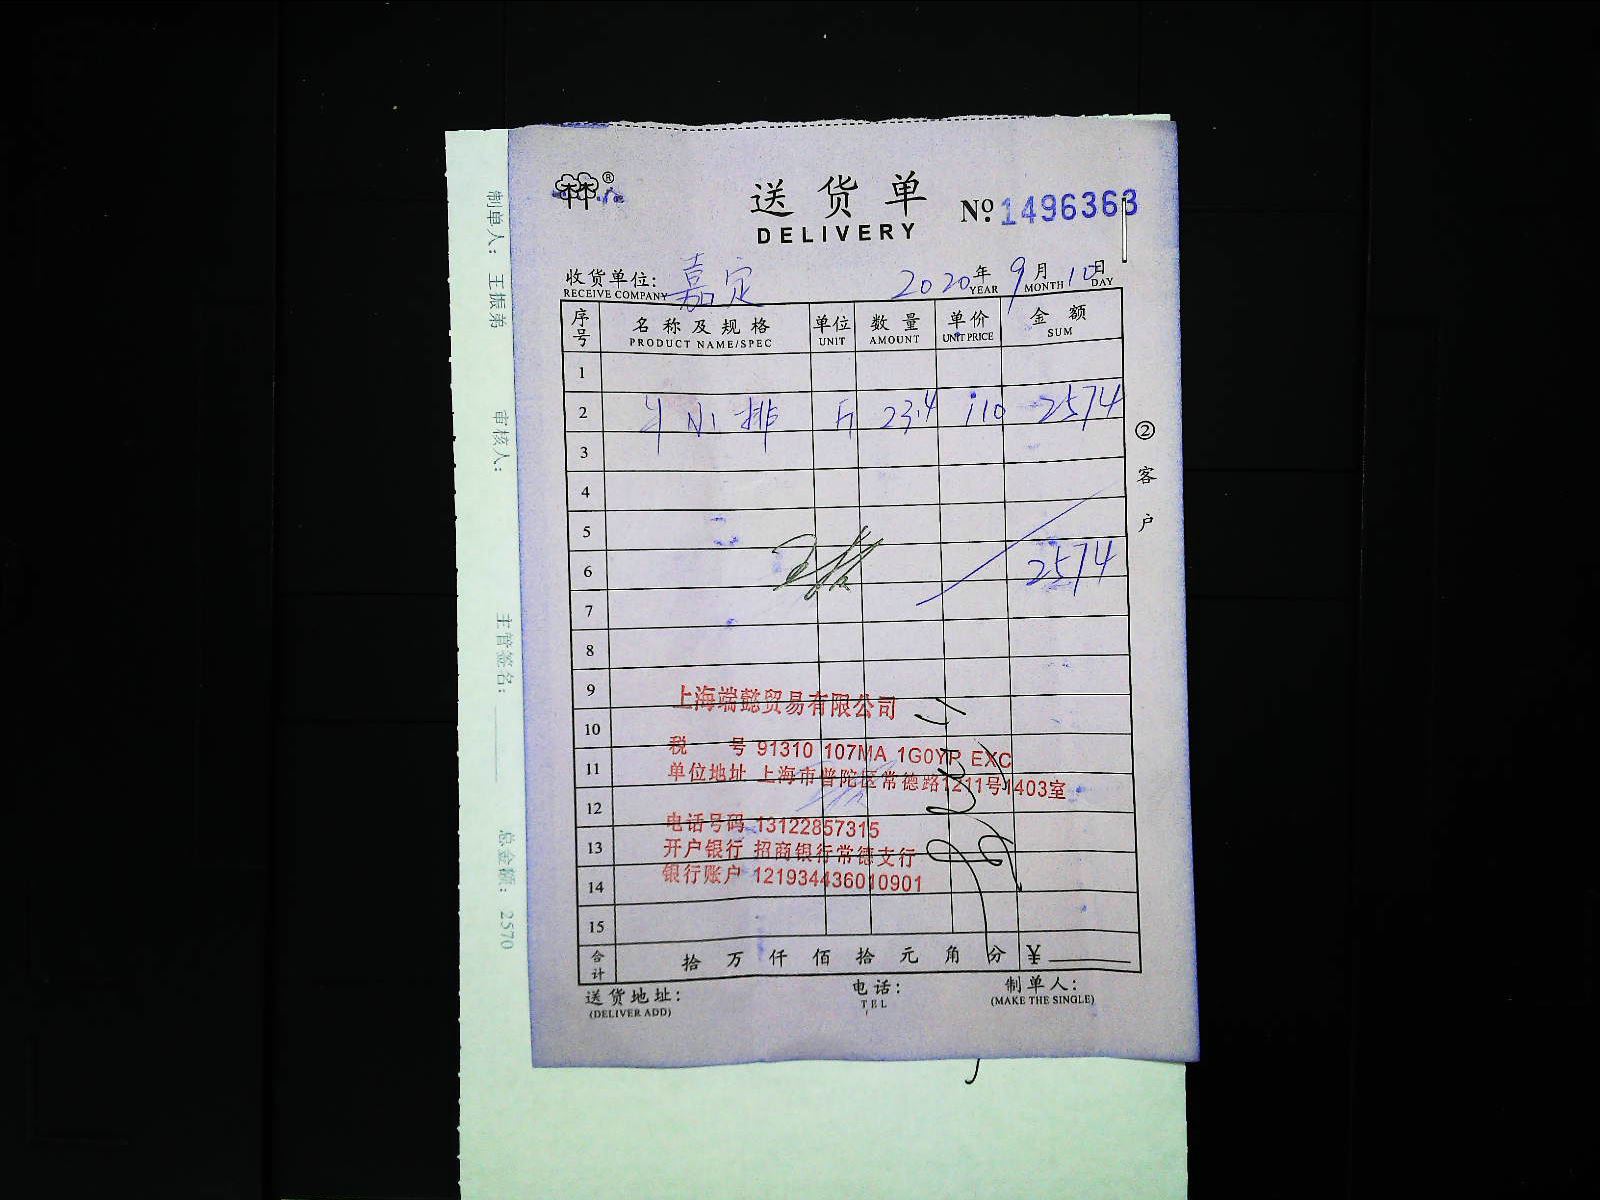 送货单
DELIVERY
№ 1496363
收货单位: 嘉定
RECEIVE COMPANY
2020年 9月 10日
YEAR MONTH DAY
序号 名称及规格 单位 数量 单价 金额
PRODUCT NAME/SPEC UNIT AMOUNT UNIT PRICE SUM
1
2 牛小排 斤 23.4 110 2574
3
4
5
6 2574
7
8
9
10
11
12
13
14
15
上海端懿贸易有限公司
税 号 91310 107MA 1G0YP EXC
单位地址 上海市普陀区常德路1211号1403室
电话号码 13122857315
开户银行 招商银行常德支行
银行账户 121934436010901
合计 拾 万 仟 佰 拾 元 角 分 ¥
送货地址: 电话: 制单人:
(DELIVER ADD) TEL (MAKE THE SINGLE)
②客户
制单人: 王振弟 审核人: 主管签名: 总金额: 2570